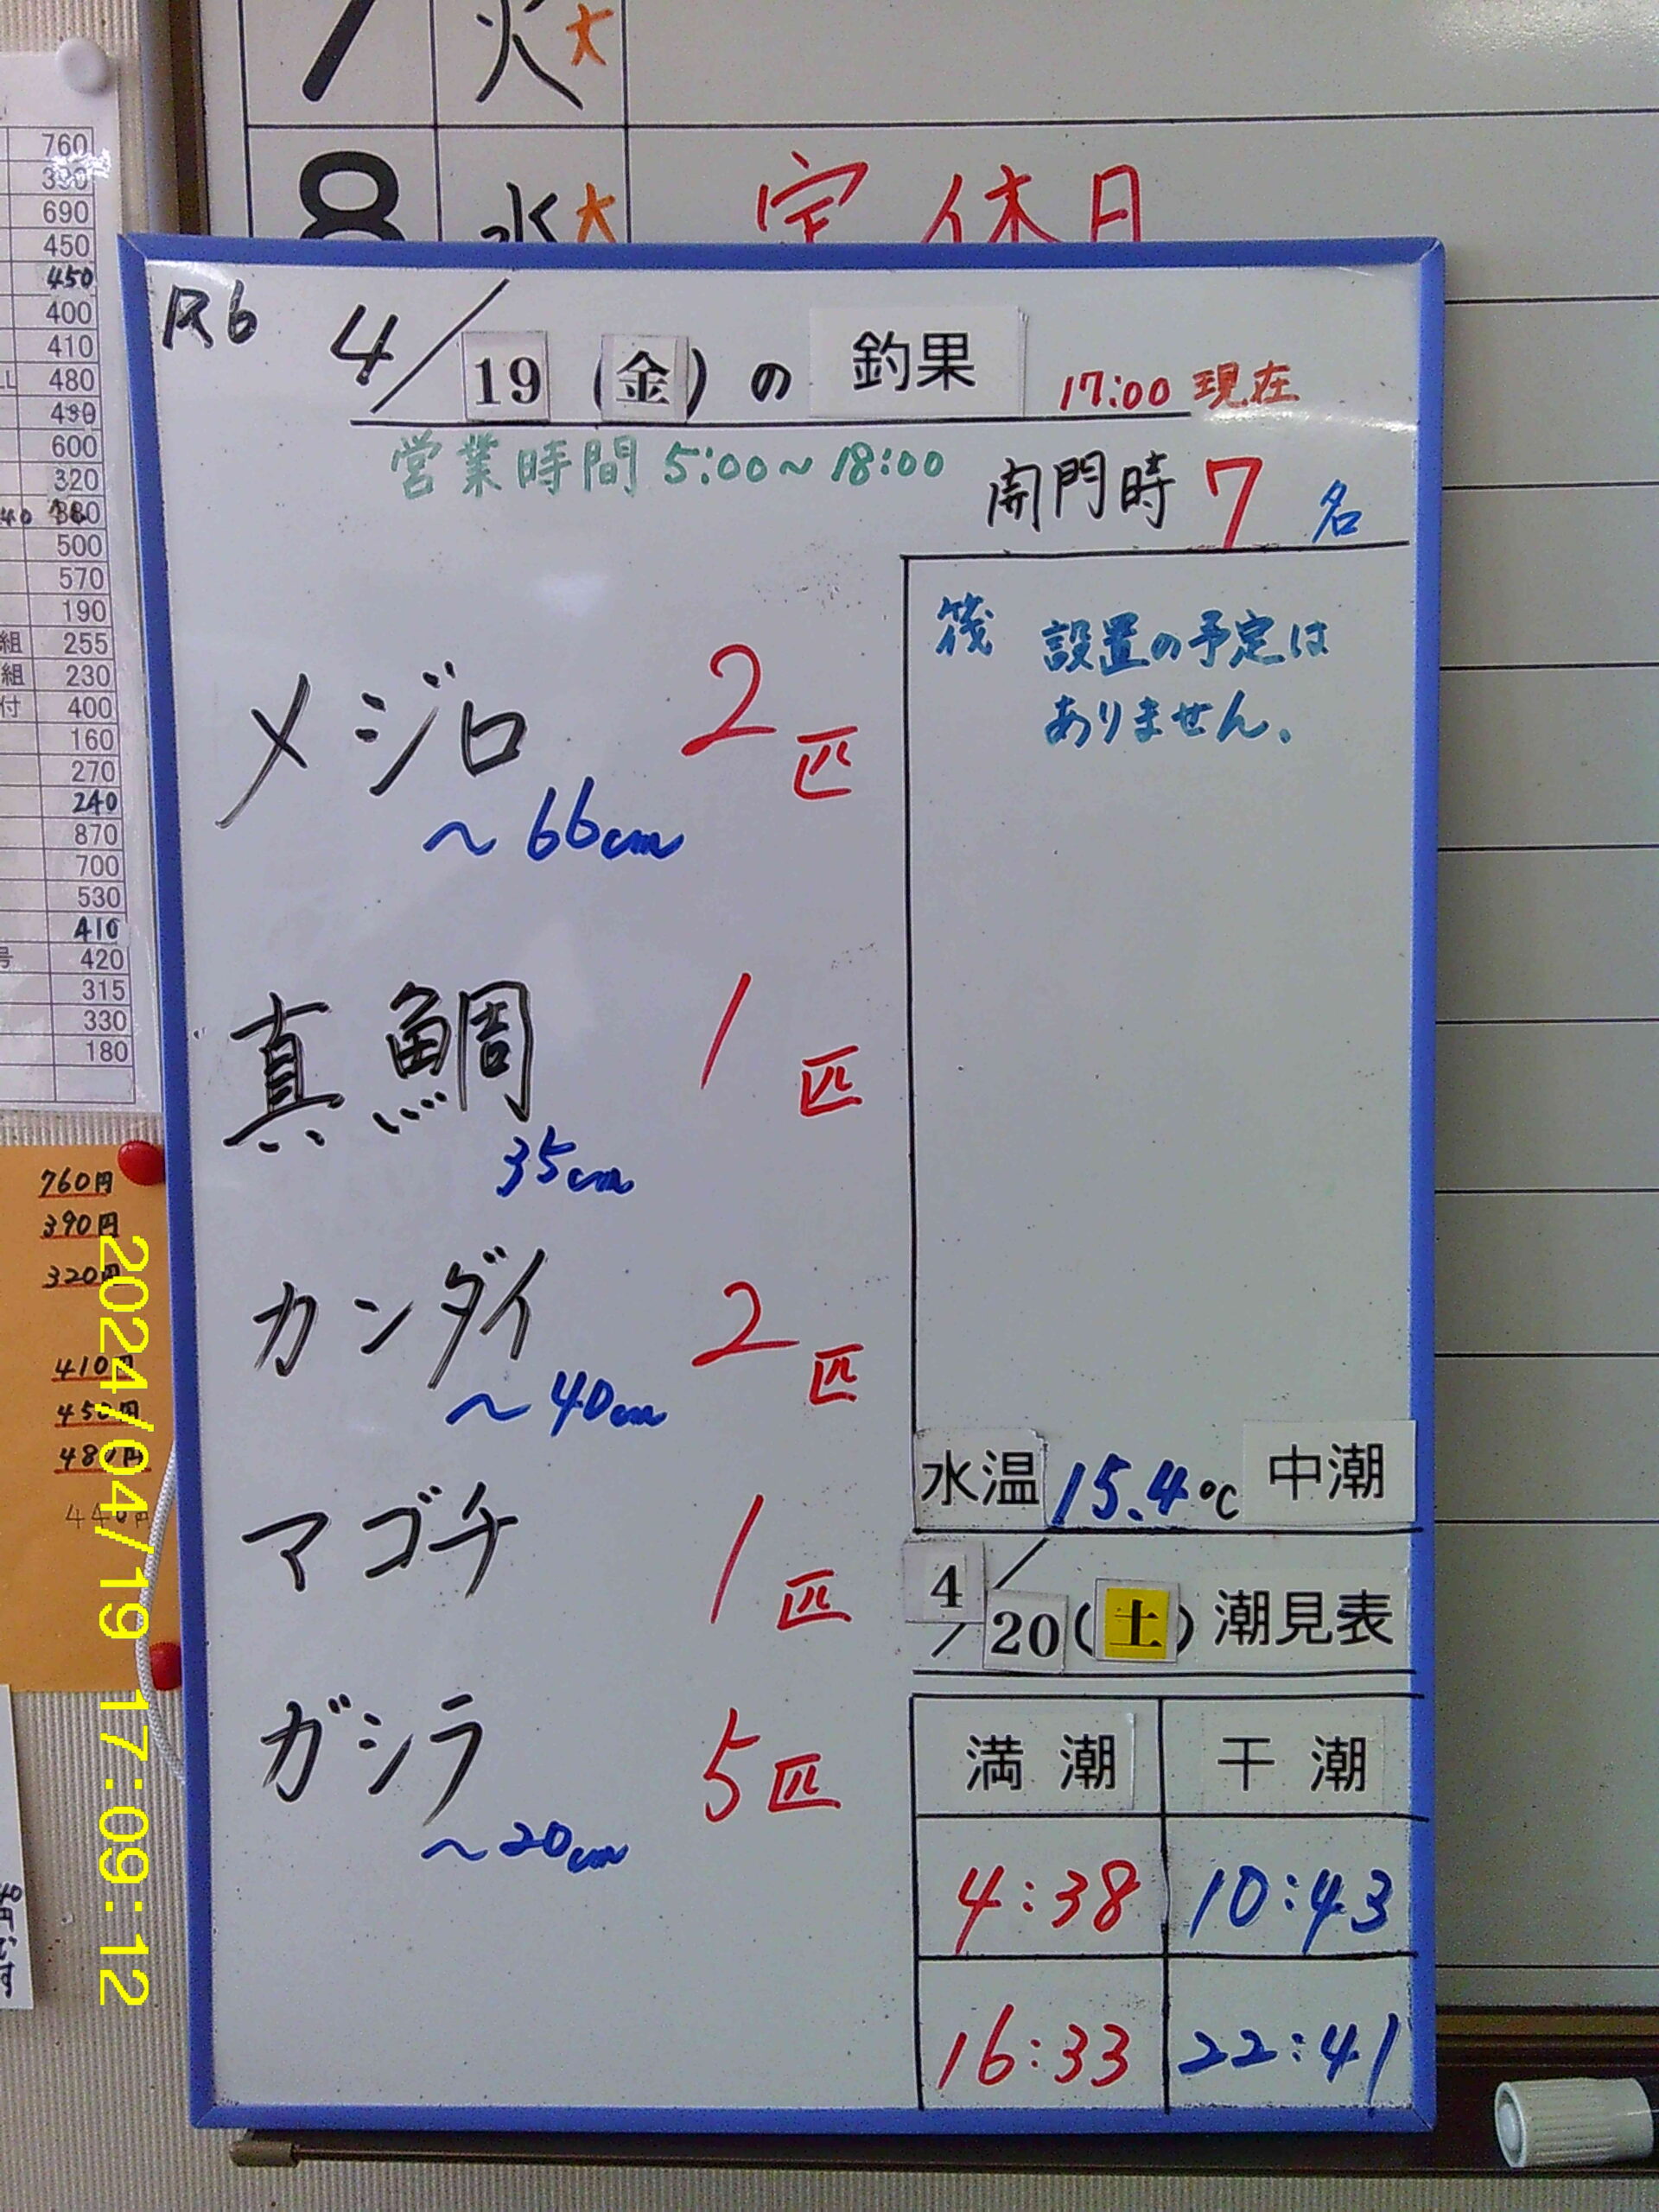 7 火 大
8 水 大 定休日
R6 4/19(金)の釣果 17:00現在
営業時間 5:00～18:00
開門時 7名
筏 設置の予定は
ありません。
メジロ 2匹
～66cm
真鯛 1匹
35cm
カンダイ 2匹
～40cm
マゴチ 1匹
ガシラ 5匹
～20cm
水温 15.4℃ 中潮
4/20(土)潮見表
満潮 干潮
4:38 10:43
16:33 22:41
760
690
450
450
400
410
LL 480
600
320
500
570
190
組 255
組 230
付 400
160
270
240
870
700
530
410
号 420
315
330
180
760円
390円
320円
410円
450円
480円
440円
2024/04/19 17:09:12